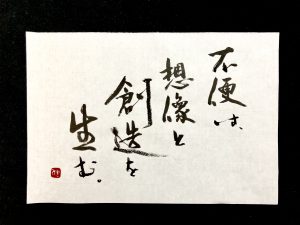 不便は、
想像と
創造を
生む。